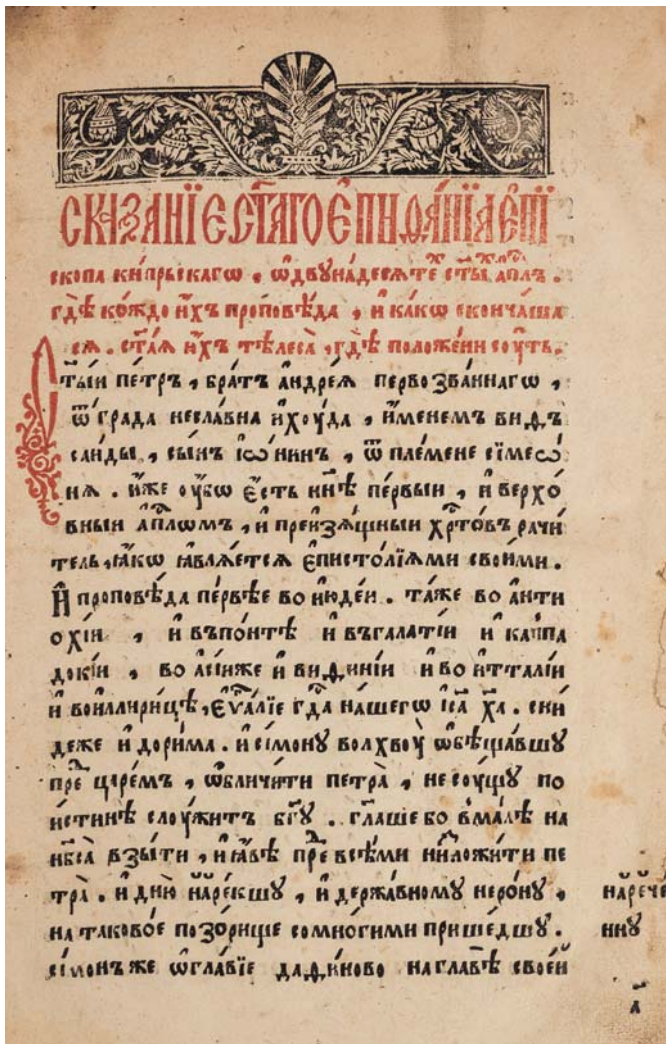 СКАЗАНЇЕ СТ҃АГО Е҆ПИФА́НЇА Е҆ПЇ
скопа ки́прьскагѡ , ѡ҆двуна́десѧте ст҃ы́х а҆пл҃ъ .
гдѣ̀ ко́ждо и҆́хъ проповѣ́да , и҆ ка́кѡ сконча́ша
сѧ . ст҃а́ѧ и҆́хъ тѣлеса̀ , гдѣ̀ положе́ни соу́ть .
Ст҃ы́и пе́тръ , бра́тъ а҆ндре́ѧ первозва́ннагѡ ,
ѿ гра́да несла́вна и҆ хоу́да , и҆́менемъ виѳъ
саи́ды , сы́нъ і҆ѡ́нинъ , ѿ пле́мене сїмеѡ́
нѧ . и҆́же оу҆́бѡ є҆́сть нн҃ѣ пе́рвыи , и҆ верхо́
вныи а҆пл҃ѡмъ , и҆ преизѧ́щныи хрⷭ҇то́въ рачи́
тель , ꙗ҆́кѡ ꙗ҆влѧ́етсѧ є҆писто́лїѧми свои́ми .
И҆ проповѣ́да пе́рвѣе во и҆юде́и . та́же во а҆нти
охі́и , и҆ въпо́нтѣ и҆ въгала́тїи и҆ каппа
доки́и , во а҆сі́иже и҆ виѳині́и и҆ во и҆тталі́и
и҆ воиллири́цѣ , є҆ѵⷢ҇а́лїе гдⷭ҇а на́шегѡ і҆с҃а хрⷭ҇а̀ . сни́
деже и҆ дори́ма . и҆ сі́мону волхвоу̀ ѡ҆бѣща́вшу
преⷣ царе́мъ , ѡ҆бличи́ти петра̀ , не соу́щу по
и́стинѣ слоу́житъ бг҃у . гл҃аше бо в̾ма́лѣ на
нб҃са̀ взы́ти , и҆ ꙗ҆́вѣ преⷣ всѣ́ми низложи́ти пе
тра̀ . и҆ дню̀ наре́кшу , и҆ держа́вному неро́ну ,
на таково́е позо́рище со мно́гими прише́дшу .
сі́монъ же ѡ҆гла́вїе дафи́ново на главѣ̀ свое́й
наⷬ҇рече́
нну
а҃